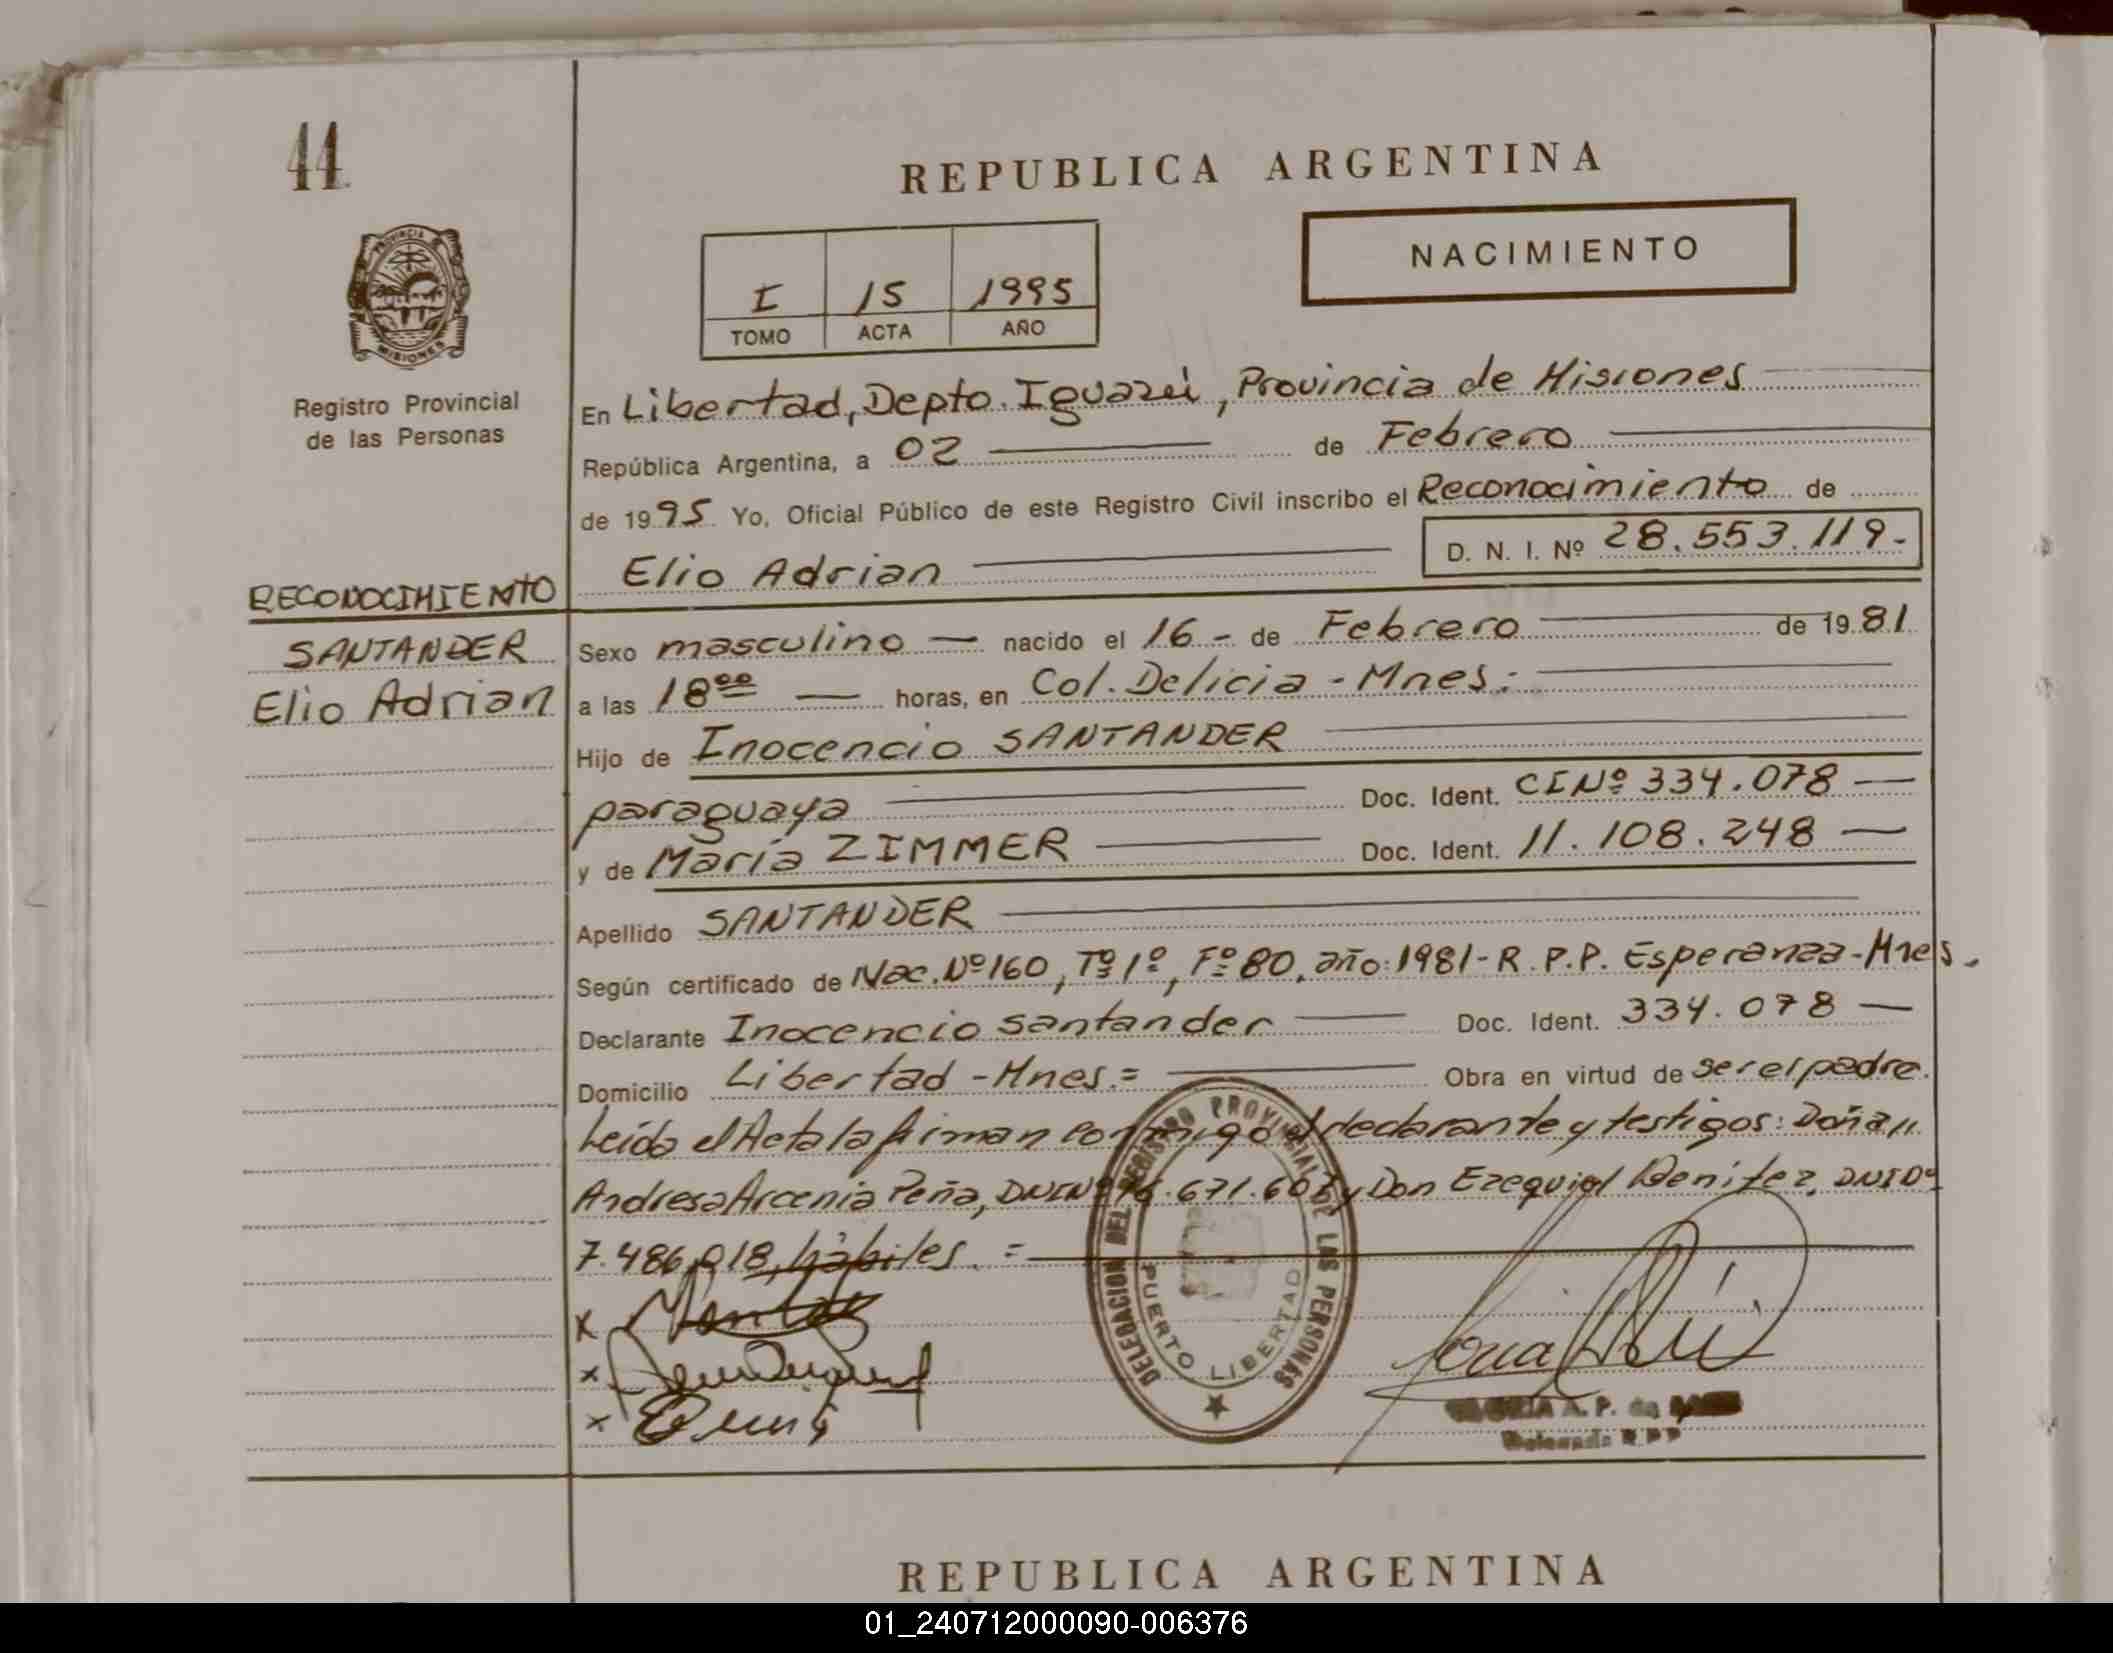 44
REPUBLICA ARGENTINA
NACIMIENTO
I 15 1995
TOMO ACTA AÑO
PROVINCIA
MISIONES
Registro Provincial
de las Personas
En Libertad, Depto. Iguazú, Provincia de Misiones
República Argentina, a 02 de Febrero
de 1995 Yo, Oficial Público de este Registro Civil inscribo el Reconocimiento de
Elio Adrian D. N. I. Nº 28.553.119.-
RECONOCIMIENTO
SANTANDER
Elio Adrian
Sexo masculino nacido el 16 - de Febrero de 1981
a las 18 00 horas, en Col. Delicia - Mnes:
Hijo de Inocencio SANTANDER
paraguaya Doc. Ident. CINº 334.078
y de María ZIMMER Doc. Ident. 11.108.248
Apellido SANTANDER
Según certificado de Nac. Nº 160, Tº 1º, Fº 80, año: 1981 - R.P.P. Esperanza - Mnes.
Declarante Inocencio Santander Doc. Ident. 334.078
Domicilio Libertad - Mnes. = Obra en virtud de ser el padre.
Leída el Acta la firman conmigo el declarante y testigos: Doña
Andresa Arcenia Peña, DNI Nº .671.60 y Don Ezequiel Benitez, DNI
7.486.018, hábiles. =
x
x
x
DELEGACION DEL REGISTRO PROVINCIAL DE LAS PERSONAS
PUERTO LIBERTAD
A. P. de
Delegada R.P.P
REPUBLICA ARGENTINA
01_240712000090-006376